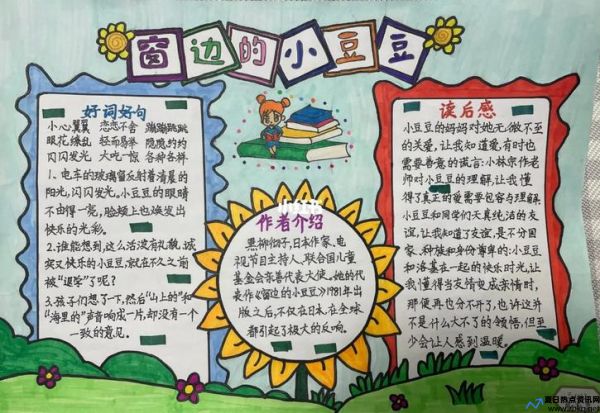 窗边的小豆豆
好词好句
小心翼翼 恋恋不舍 蹦蹦跳跳
眼花缭乱 轻而易举 隐隐约约
闪闪发光 大吃一惊 各种各样
1、电车的玻璃窗反射着清晨的
阳光,闪闪发光。小豆豆的眼睛
不由得一亮,脸颊上也焕发出
快乐的光彩。
2、谁能想到,这么活泼有礼貌、诚
实又快乐的小豆豆,就在不久之前
被“退学”了呢?
3、孩子们想了一下,然后“山上的”和
“海里的”声音响成一片,却没有一个
一致的意见。
作者介绍
黑柳彻子,日本作家、电
视节目主持人、联合国儿童
基金会亲善代表大使。她的代
表作《窗边的小豆豆》1981年出
版之后,不仅在日本,在全球
都引起了极大的反响。
读后感
小豆豆的妈妈对她无微不至
的关爱,让我知道爱,有时也
需要善意的谎言;小林宗作老
师对小豆豆的理解,让我懂
得了真正的爱需要包容与理解;
小豆豆和同学们天真纯洁的友
谊,让我知道了友谊,是不分国
家、种族和身份尊卑的;小豆豆
和洛基在一起的快乐时光,让
我懂得当友情变成亲情时,
那便再也分不开了,也许这并
不是什么大不了的领悟,但至
少会让人感到温暖。
夏日热点资讯网